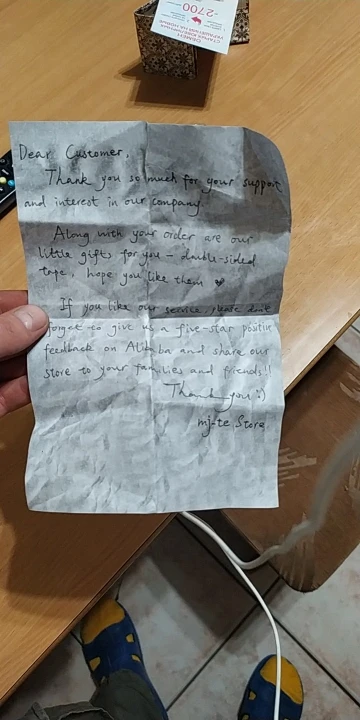 -2700
Dear Customer,
Thank you so much for your support
and interest in our company
Along with your order are our
little gifts for you - double-sided
tape, hope you like them ♥
If you like our service, please don't
forget to give us a five-star positive
feedback on Alibaba and share our
store to your families and friends!!
Thank you :)
mj-te Store